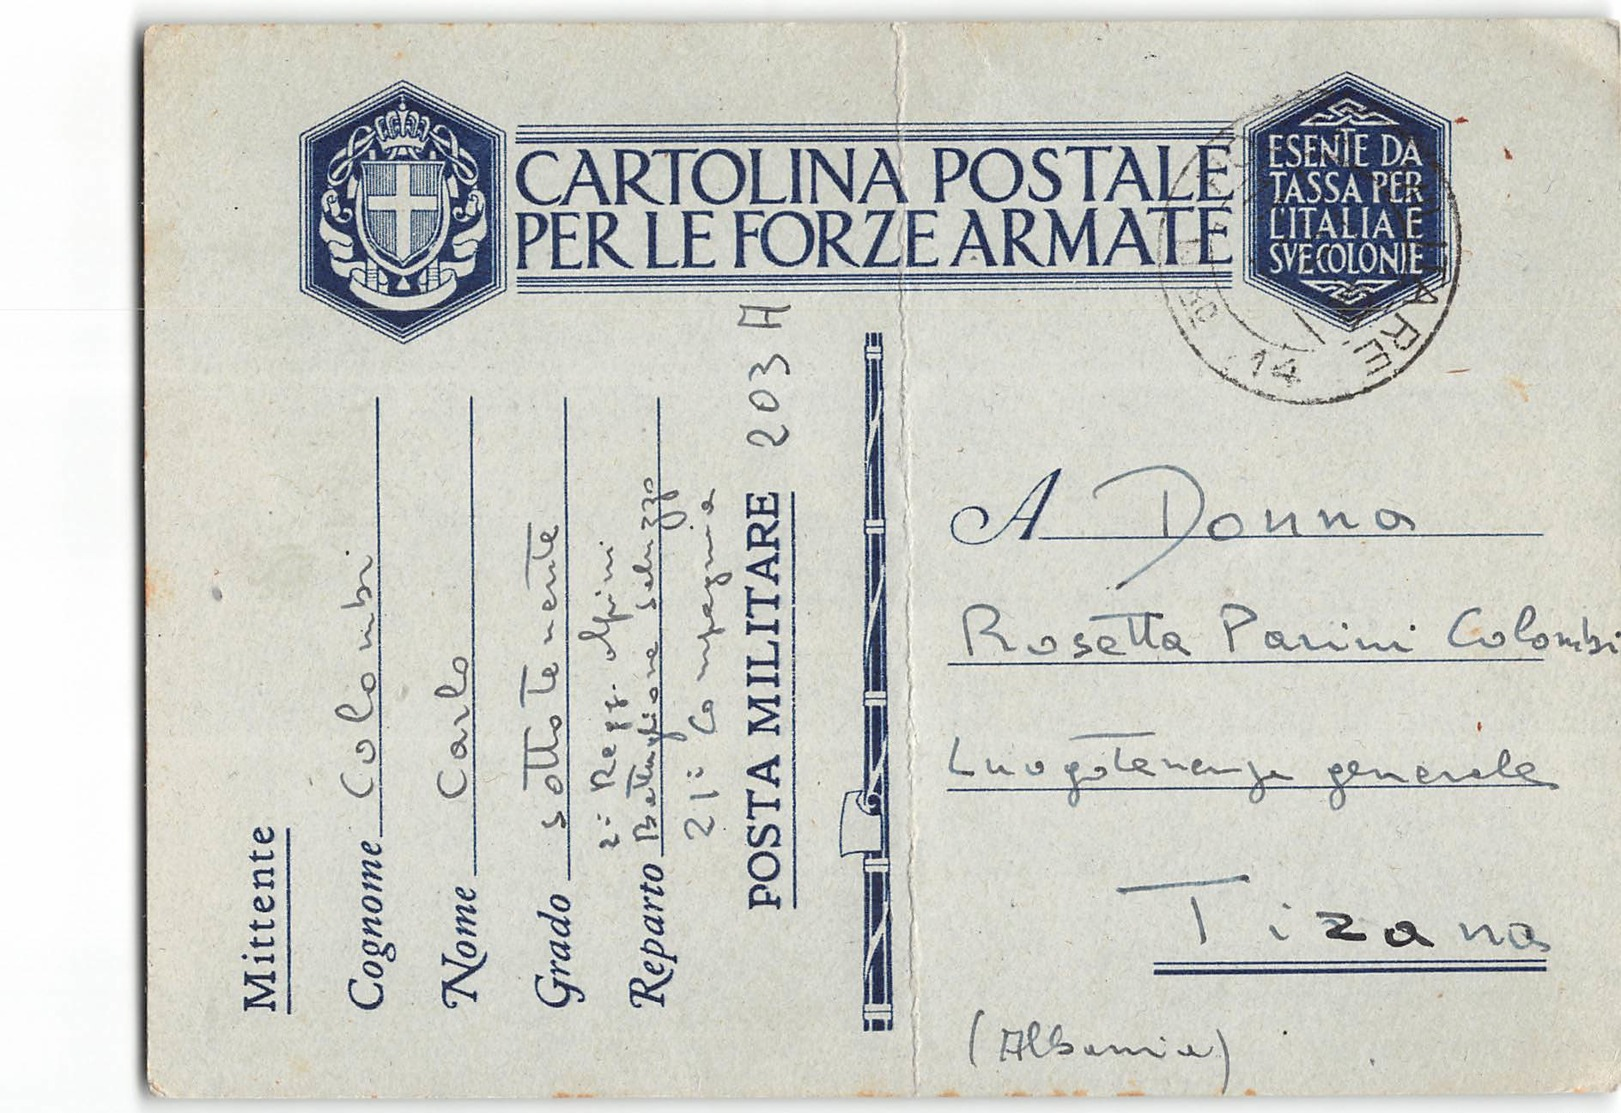 CARTOLINA POSTALE
PER LE FORZE ARMATE
ESENTE DA
TASSA PER
L'ITALIA E
SVE COLONIE
14
Mittente
Cognome Colombi
Nome Carlo
Grado sottotenente
2º Regg. Alpini
Reparto Battaglione Saluzzo
21ª Compagnia
POSTA MILITARE 203 A
A Donna
Rosetta Parini Colombi
Luogotenenza generale
Tirana
(Albania)